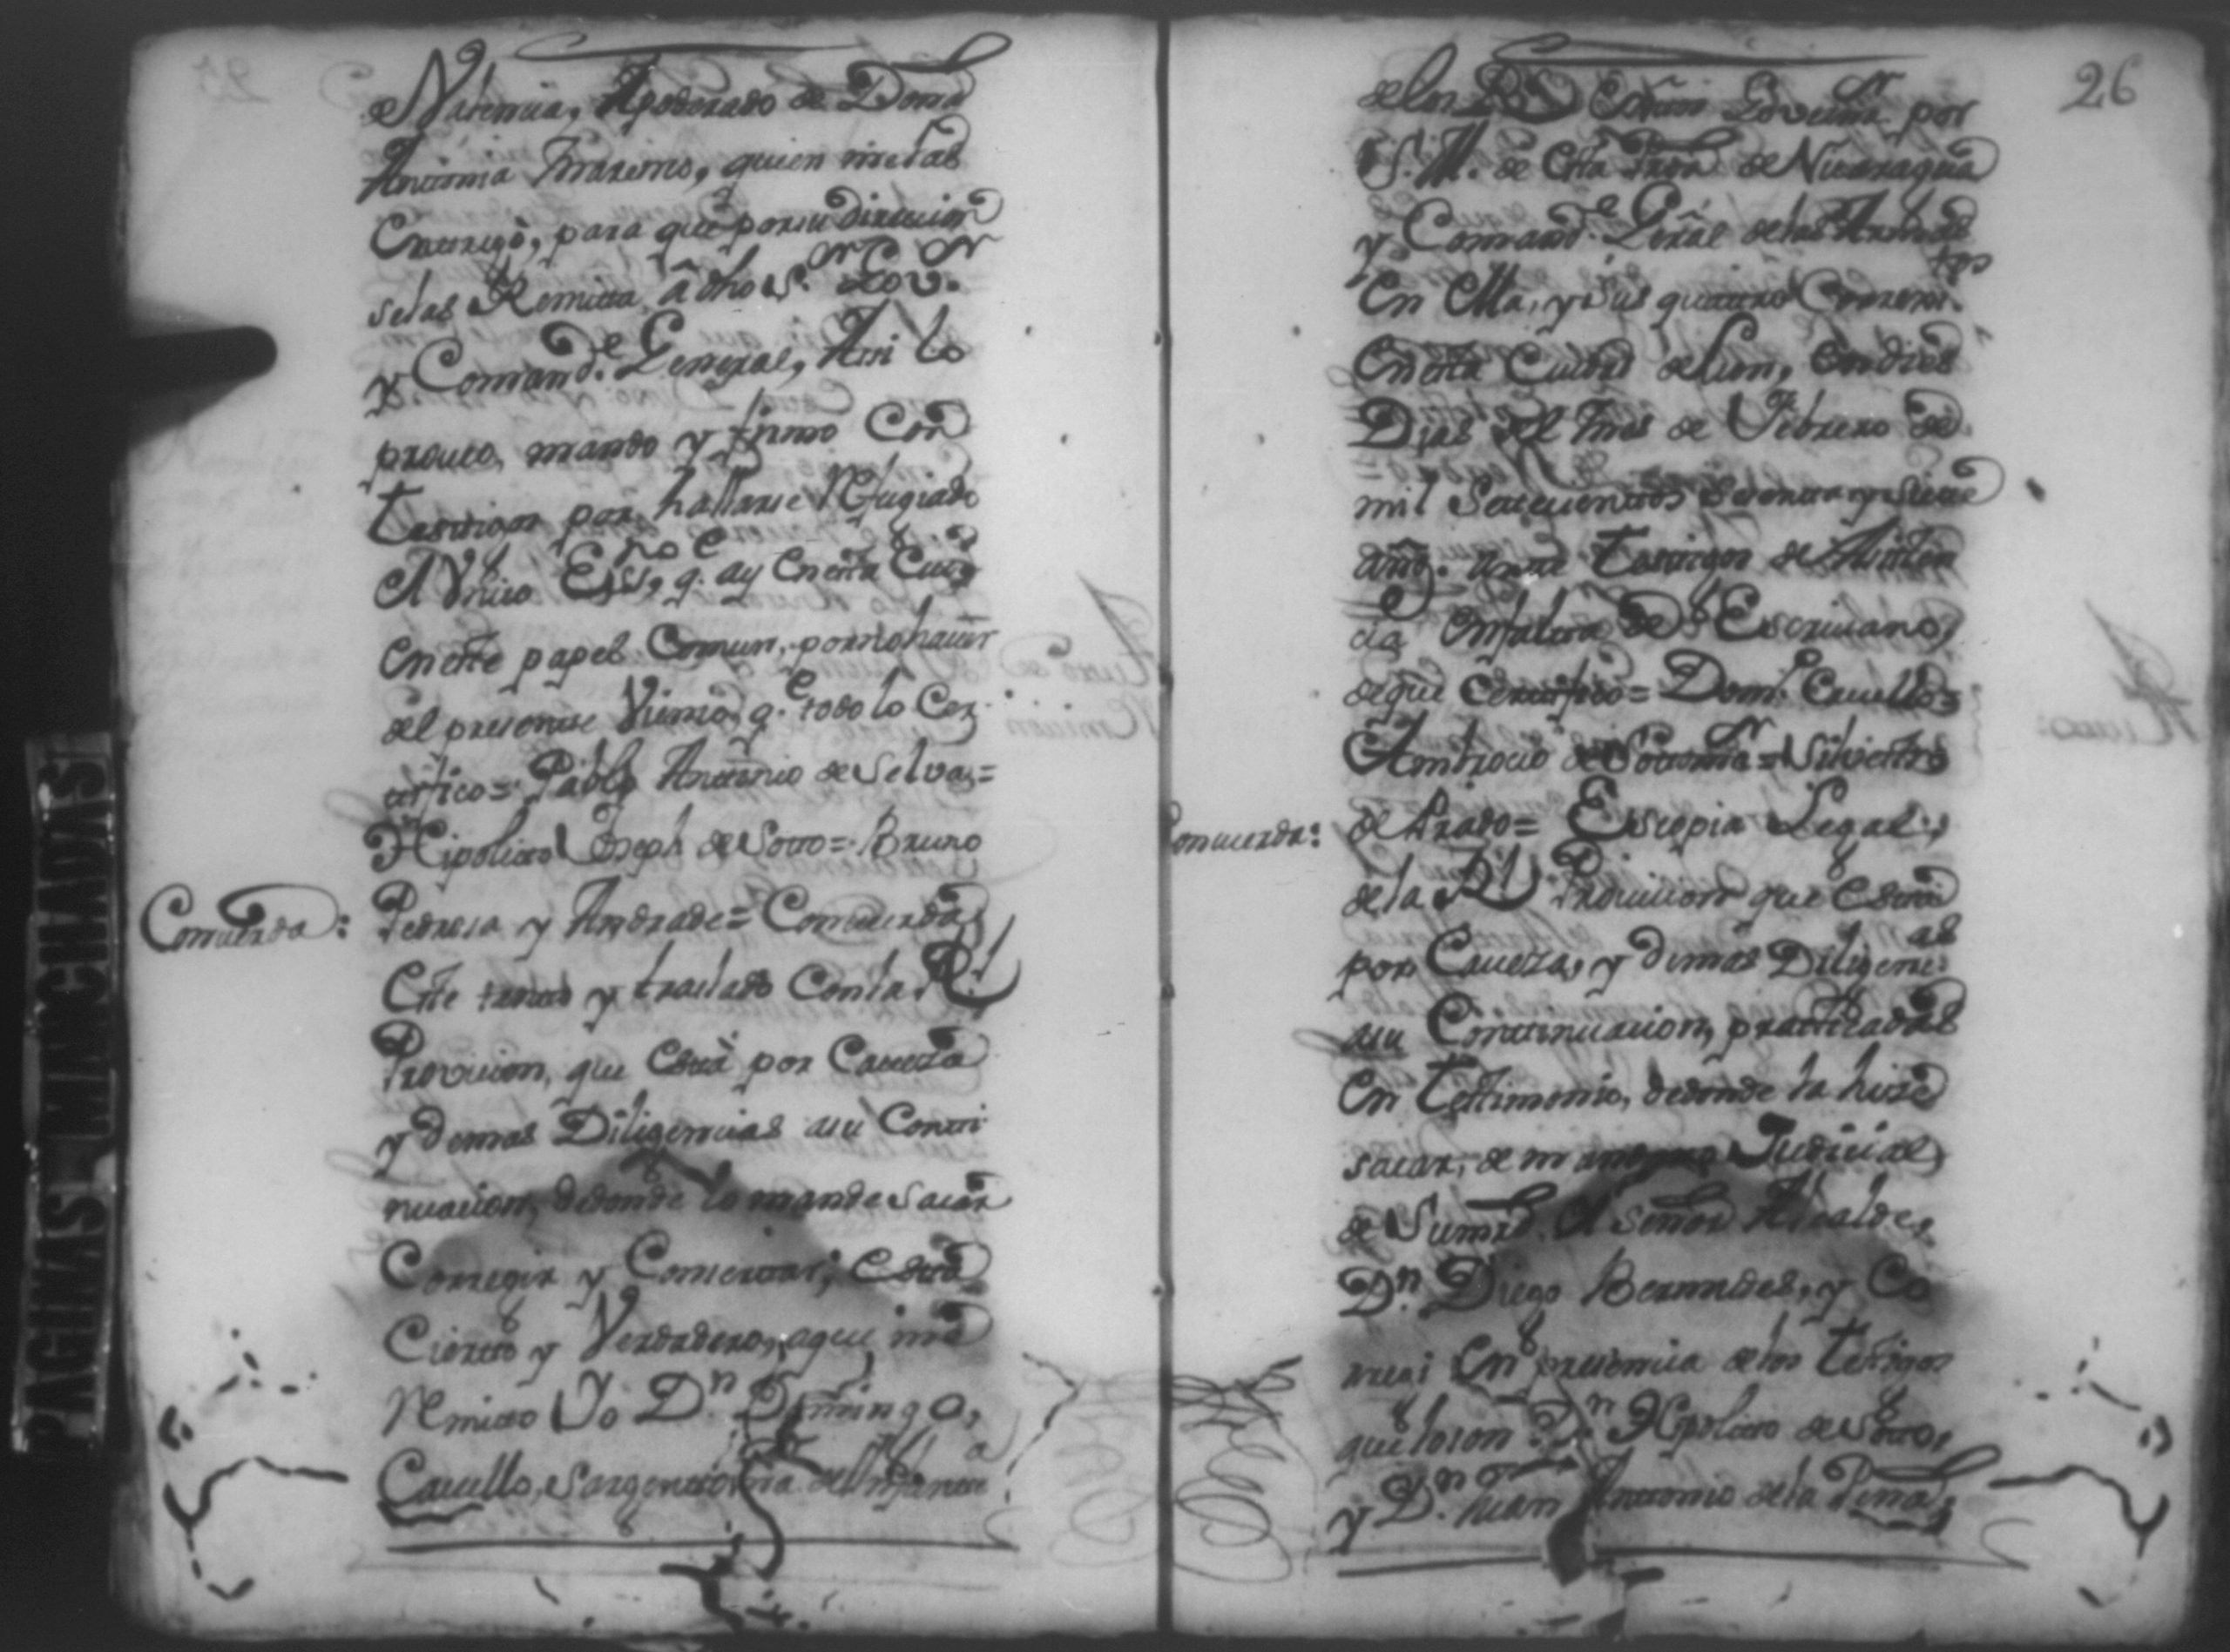 de Valencia, Apoderado de Dona
Antonia Brazeno, quien me las
Entregò, para que por su direccion
se las Remita â dho S.r Gov.r
y Comand.te General, Assi lo
proveo, mando y firmo Con
testigos por hallarse Refugiado
el Unico Ess.no q.e ay en esta Ciud.
en este papel Comun, por no haver
del presente Viemo, q.e todo lo Cer
tifico = Pablo Antonio de Selva =
Hipolito Joseph de Sotto = Bruno
Concuerda:
Pedrosa y Andrade = Concuerda
Este tanto y traslado Con la Rl
Provicion, que està por Caveza
y demas Diligencias a su Conti
nuacion, de donde lo mande sacar
Corregir y Concertar; està
Cierto y Verdadero, a que me
Remito Yo D.n Domingo,
Cavello, Sargento ma. de Infante.a
26
de los Rs Govern.r por
S. M. de esta Prov.a de Nicaragua
y Comand.te Gen̄al de las Armas
en ella, y sus quatro Correxim.tos
En esta Ciudad de Leon, en dies
Dias del Mes de Febrero de
mil Settecientos Sesenta y siete
añs. ante testigos de Assisten
cia en falta de Escrivano,
de que Certifico = Dom.o Cavello =
Ambrocio de Sotoma.r = Silvestre
Concuerda:
de Prado = Es copia Legal,
de la Rl Provicion que està
por Caveza, y demas Diligenc.as
a su Continuacion, practicadas
en testimonio, de donde la hize
sacar, de mandato Judicial
de Sumrd. el Señor Alcalde,
D.n Diego Bermudes, y Co
rregi en presencia de los testigos
que loson D.n Hipolito de Sotto,
y D.n Juan Antonio de la Pena,
PAGINAS MANCHADAS